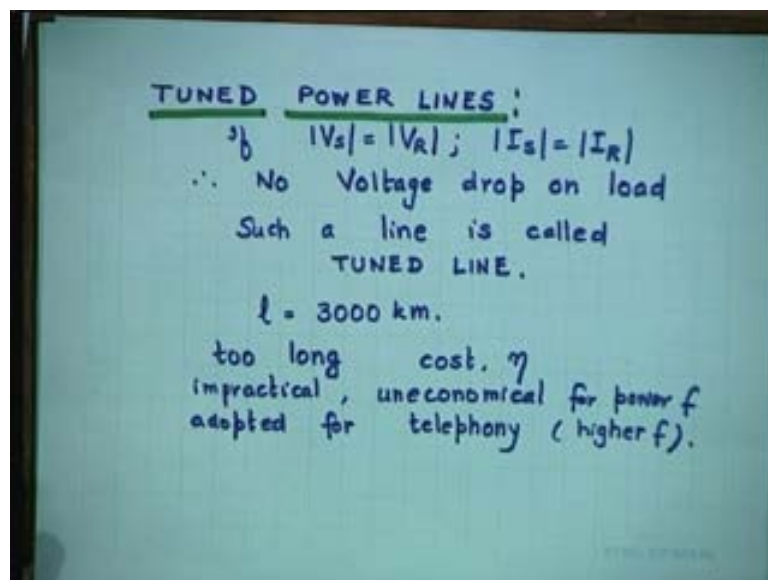 TUNED POWER LINES:
If |Vs| = |VR| ; |Is| = |IR|
∴ No Voltage drop on load
Such a line is called
TUNED LINE.
l = 3000 km.
too long cost. η
impractical, uneconomical for power f
adopted for telephony (higher f).